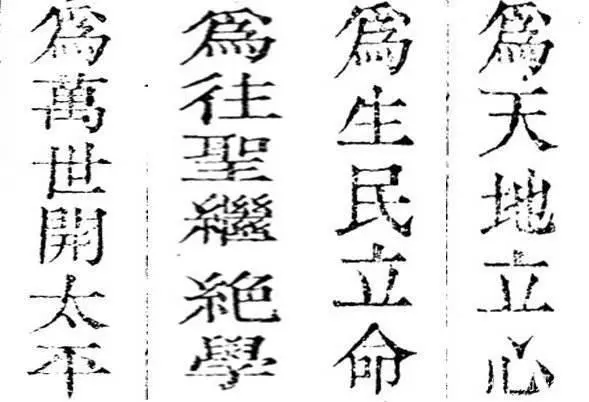 爲天地立心
爲生民立命
爲往聖繼絶學
爲萬世開太平